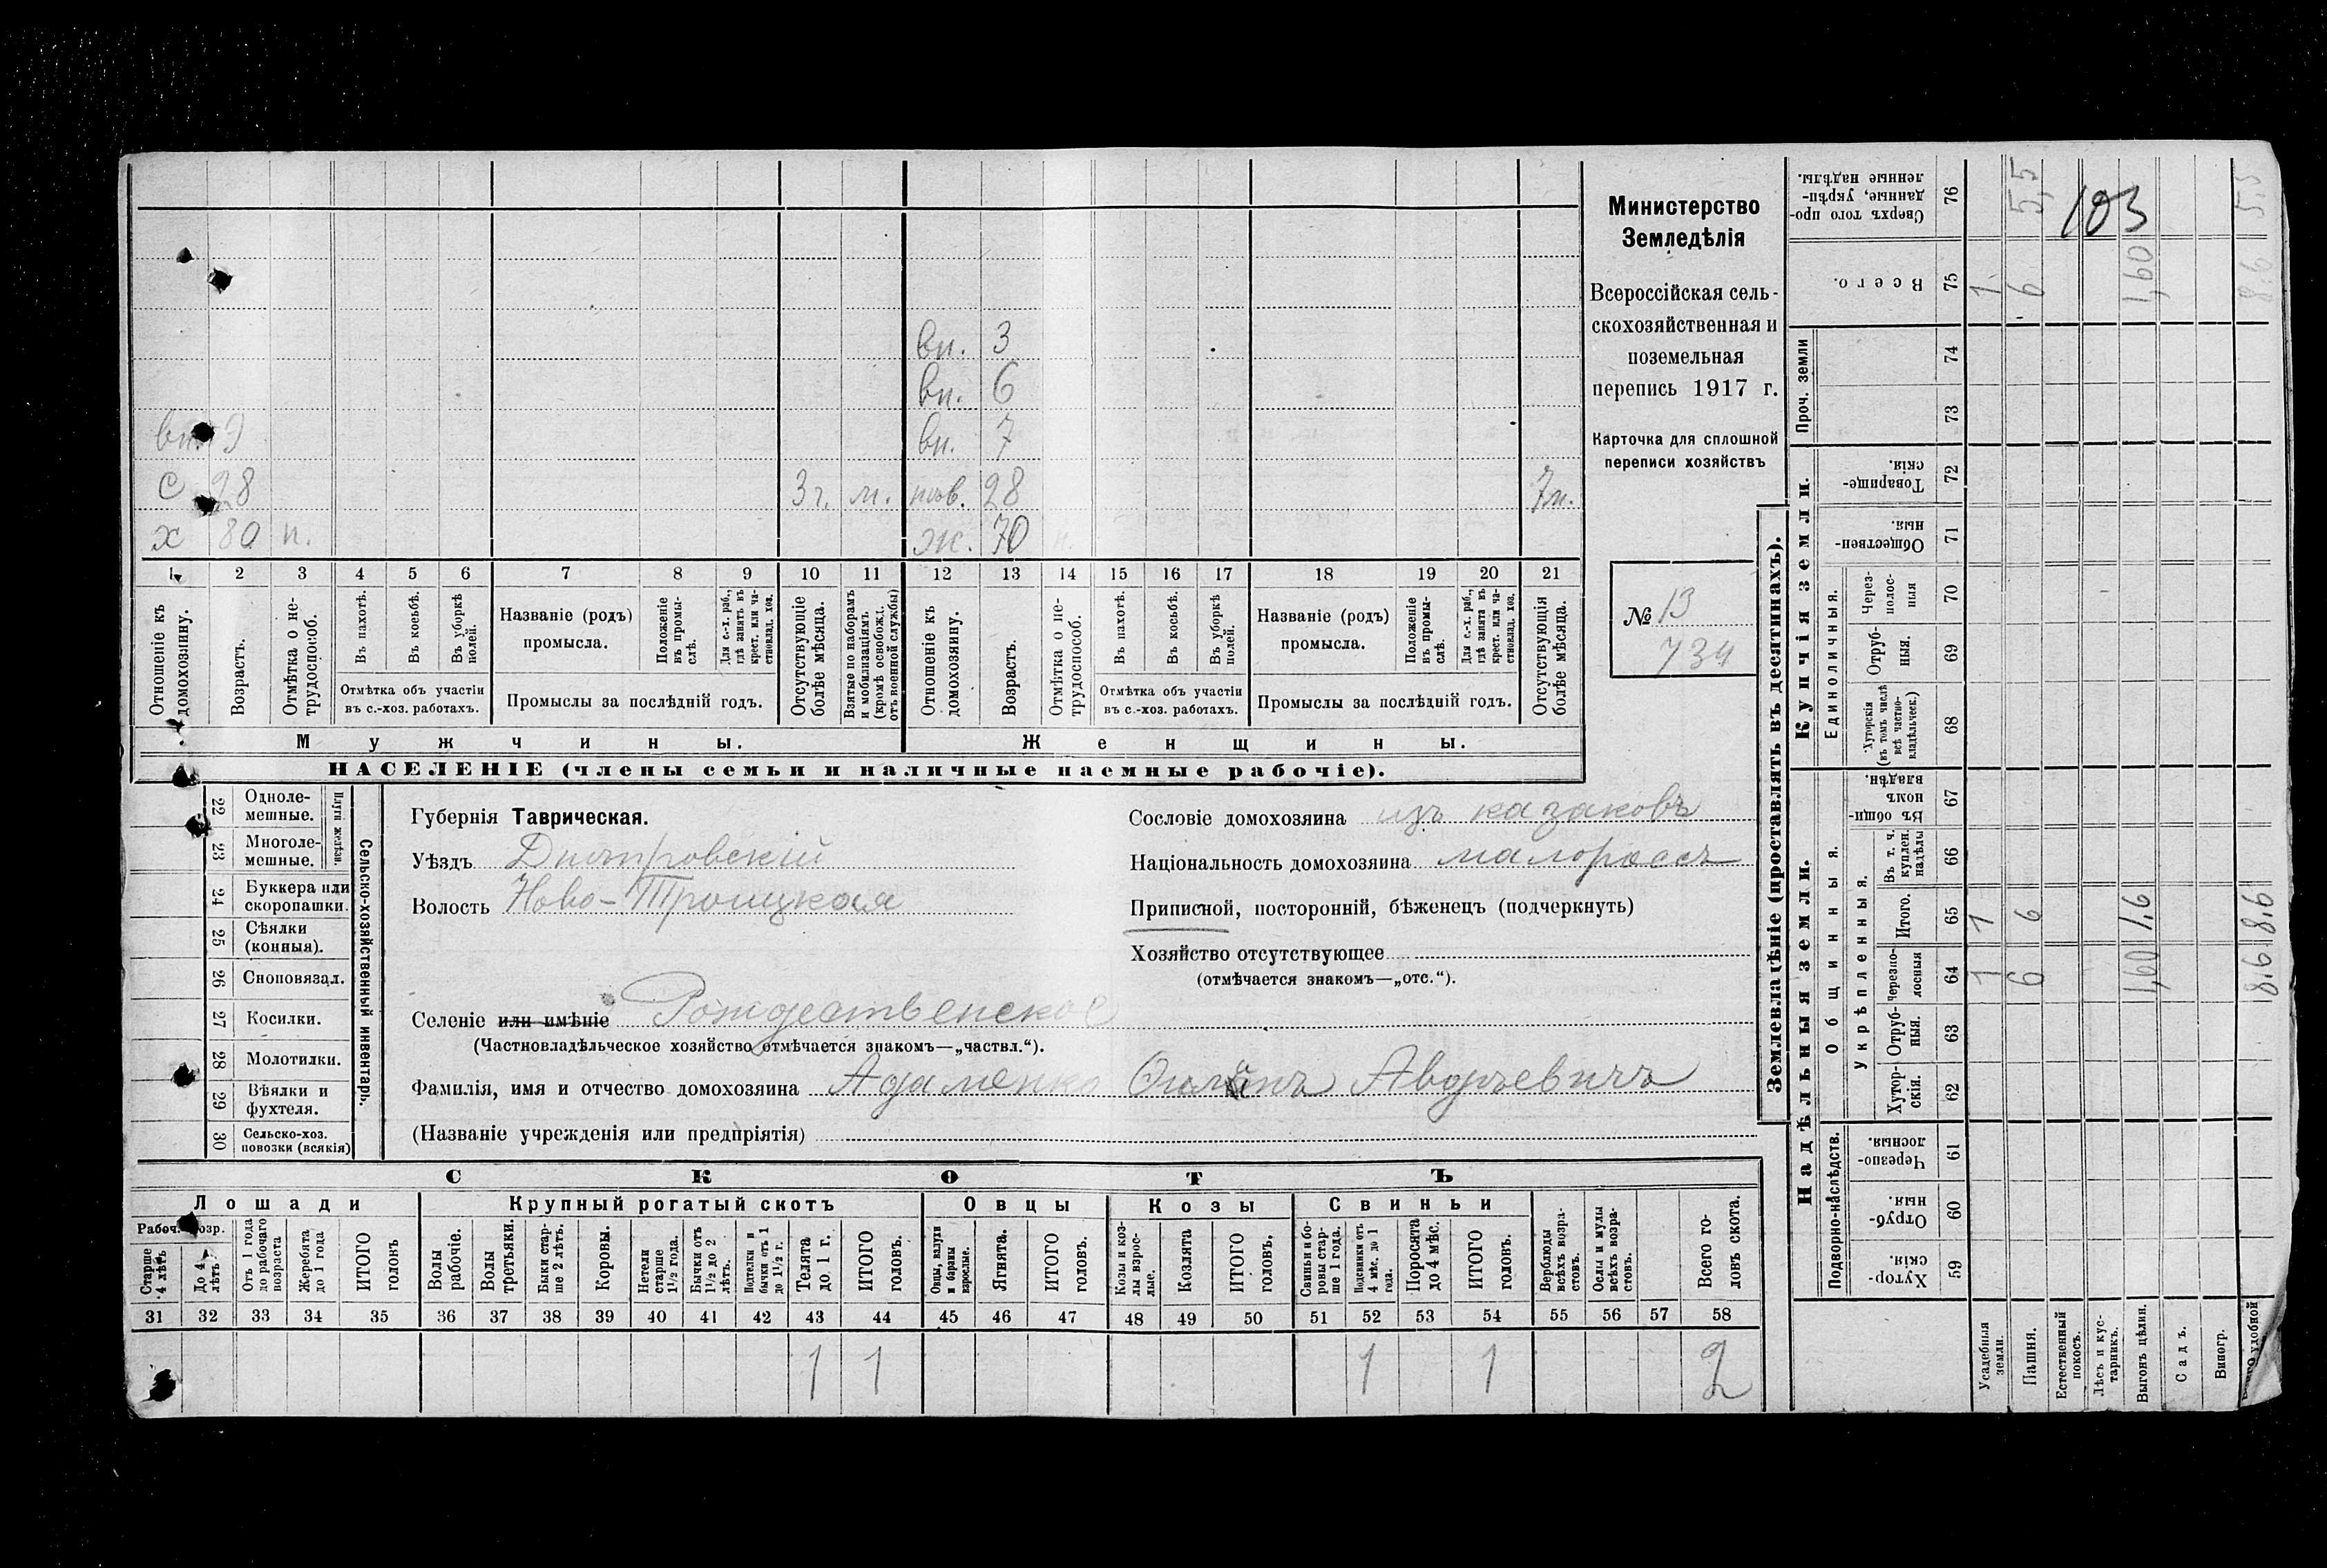 Министерство
Земледѣлія
Всероссійская сель-
скохозяйственная и
поземельная
перепись 1917 г.
Карточка для сплошной
переписи хозяйствъ
№ 13
734
вн. 3
вн. 6
вн. вн. 7
с 28 3 г. м. нев. 28 7 м.
х 80 п. ж. 70
1 2 3 4 5 6 7 8 9 10 11 12 13 14 15 16 17 18 19 20 21
Отношеніе къ домохозяину.
Возрастъ.
Отмѣтка о не-трудоспособ.
Въ пахотѣ.
Въ косьбѣ.
Въ уборкѣ полей.
Отмѣтка объ участіи
въ с.-хоз. работахъ.
Названіе (родъ)
промысла.
Положеніе въ промы-слѣ.
Для с.-х. раб., гдѣ занятъ въ крест. или ча-стновлад. хоз.
Промыслы за послѣдній годъ.
Отсутствующіе болѣе мѣсяца.
Взятые по наборамъ и мобилизаціямъ (кромѣ освобожд. отъ военной службы)
Отношеніе къ домохозяину.
Возрастъ.
Отмѣтка о не-трудоспособ.
Въ пахотѣ.
Въ косьбѣ.
Въ уборкѣ полей.
Отмѣтка объ участіи
въ с.-хоз. работахъ.
Названіе (родъ)
промысла.
Положеніе въ промы-слѣ.
Для с.-х. раб., гдѣ занятъ въ крест. или ча-стновлад. хоз.
Промыслы за послѣдній годъ.
Отсутствующія болѣе мѣсяца.
Мужчины. Женщины.
НАСЕЛЕНІЕ (члены семьи и наличные наемные рабочіе).
Сельско-хозяйственный инвентарь.
Плуги желѣзн.
22 Одноле-мешные.
23 Многоле-мешные.
24 Буккера или скоропашки.
25 Сѣялки (конныя).
26 Сноповязал.
27 Косилки.
28 Молотилки.
29 Вѣялки и фухтеля.
30 Сельско-хоз. повозки (всякія)
Губернія Таврическая.
Уѣздъ Днѣпровскій
Волость Ново-Троицкая
Селеніе или имѣніе Рождественское
(Частновладѣльческое хозяйство отмѣчается знакомъ—„частвл.“).
Фамилія, имя и отчество домохозяина Адаменко Авдѣевичъ
(Названіе учрежденія или предпріятія)
Сословіе домохозяина изъ казаковъ
Національность домохозяина малороссъ
Приписной, посторонній, бѣженецъ (подчеркнуть)
Хозяйство отсутствующее
(отмѣчается знакомъ—„отс.“).
СКОТЪ
Лошади Крупный рогатый скотъ Овцы Козы Свиньи
Рабоч. возр.
Старше 4 лѣтъ
До 4 лѣтъ
Отъ 1 года до рабочаго возраста
Жеребята до 1 года
ИТОГО головъ
Волы рабочіе.
Волы третьяки.
Быки стар-ше 2 лѣтъ.
Коровы.
Нетели старше 1 1/2 года.
Бычки отъ 1 1/2 до 2 лѣтъ.
Подтелки и бычки отъ 1 до 1 1/2 г.
Телята до 1 г.
ИТОГО головъ.
Овцы, валухи и бараны взрослые.
Ягнята.
ИТОГО головъ.
Козы и коз-лы взрос-лые.
Козлята
ИТОГО головъ.
Свиньи и бо-ровы стар-ше 1 года.
Подсвинки отъ 4 мѣс. до 1 года.
Поросята до 4 мѣс.
ИТОГО головъ.
Верблюды всѣхъ возра-стовъ.
Ослы и мулы всѣхъ возра-стовъ.
Всего го-ловъ скота.
31 32 33 34 35 36 37 38 39 40 41 42 43 44 45 46 47 48 49 50 51 52 53 54 55 56 57 58
1 1 1 1 2
Землевладѣніе (проставлять въ десятинахъ).
Купчія земли.
Надѣльныя земли.
Сверхъ того про-данные, укрѣп-ленные надѣлы. 76 5,5 5,5
103
Всего. 75 1 6 1,60 8.6
Проч. земли
74
73
Товарище-скія. 72
Обществен-ныя. 71
Единоличныя.
Через-полос-ныя 70
Отруб-ныя. 69
Хуторскія (въ томъ числѣ всѣ частно-владѣльческ.) 68
Общинныя.
Въ общин-номъ владѣн. 67
Укрѣпленныя.
Въ т. ч. куплен. надѣлы 66
Итого. 65 1 6 1.6 8.6
Черезпо-лосныя 64 1 6 1,60 8.6
Отруб-ныя. 63
Хутор-скія. 62
Подворно-наслѣдств.
Черезпо-лосныя. 61
Отруб-ныя. 60
Хутор-скія. 59
Усадебныя земли.
Пашня.
Естественный покосъ.
Лѣсъ и кус-тарникъ.
Выгонъ цѣлин.
Садъ.
Виногр.
удобной